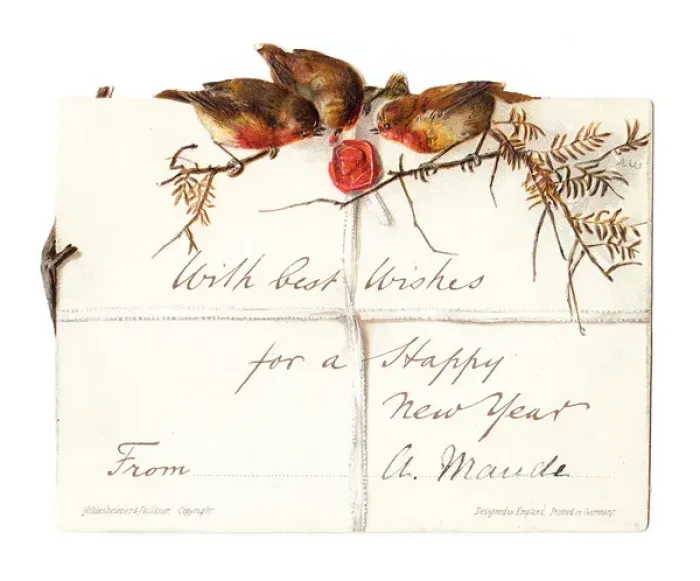 With best Wishes
for a Happy
New Year
From A. Maude
Hildesheimer & Faulkner. Copyright. Designed in England. Printed in Germany.